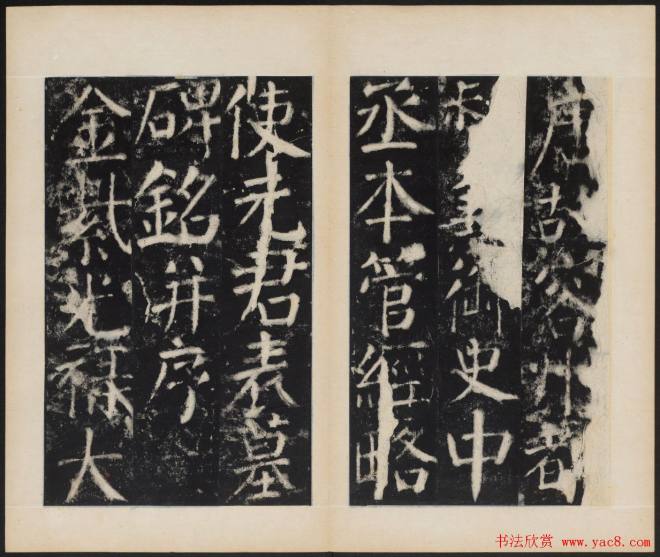 唐故容州都
御史中
丞本管經略
使元君表墓
碑銘并序
金紫光祿大
书法欣赏 www.yac8.com